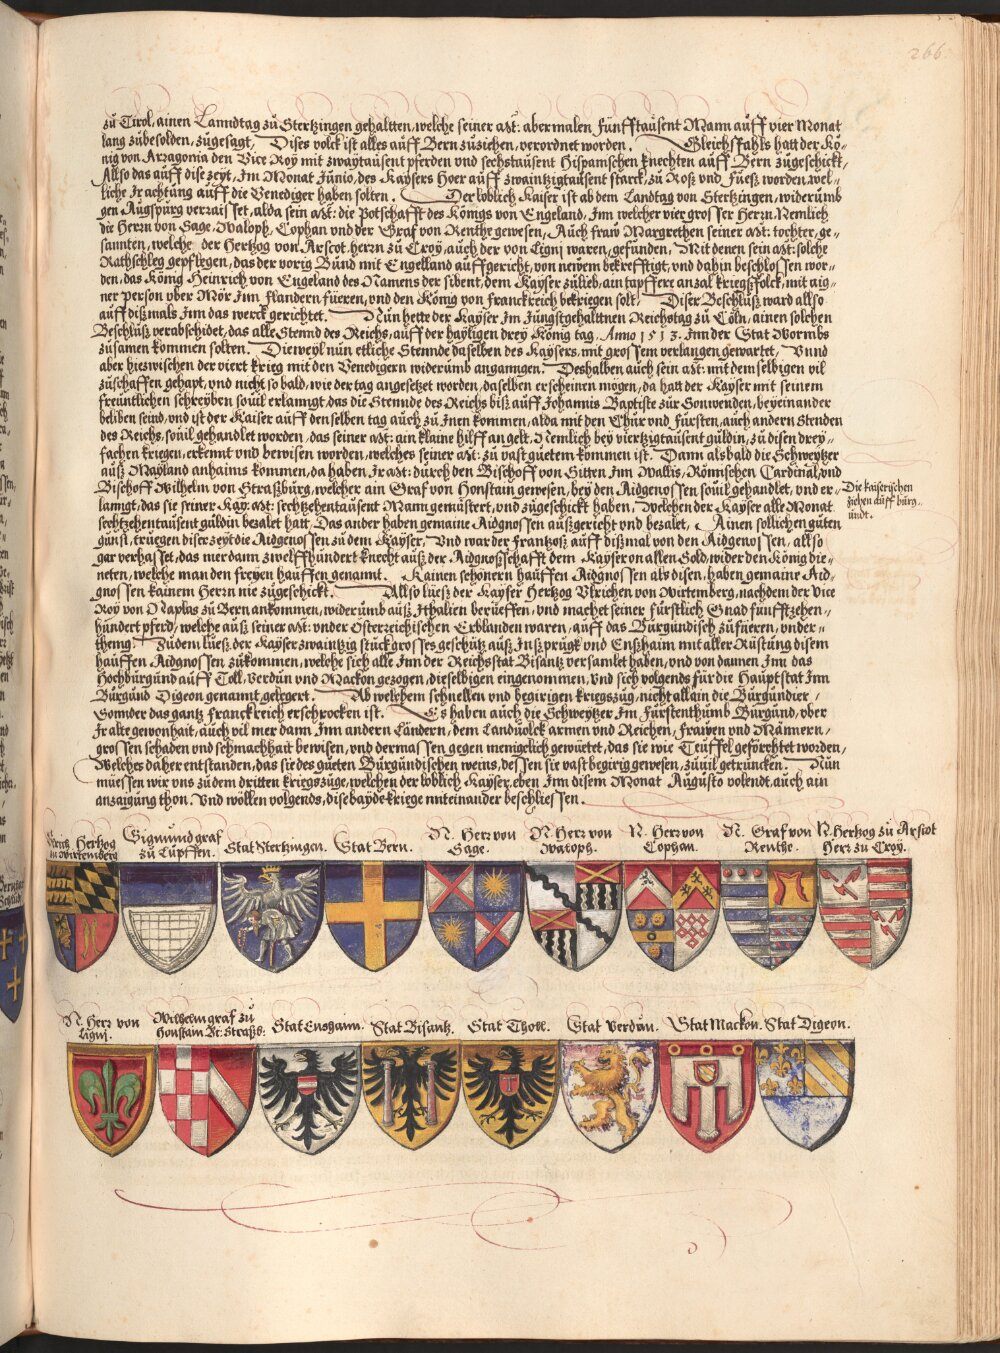 266
zů Tirol, ainen Lanndtag zů Stertzingen gehaltten, welche seiner Mt: abermalen funfftausent Mann auff vier Monat
lang zůbesolden, zůgesagt, Dises volck ist alles auff Bern zůziehen, verordnet worden. Gleichsfahls hatt der Kö-
nig von Arragonia den Vice Roÿ mit zwaÿtausent pferden vnd sechstausent Hispanischen knechten auff Bern zůgeschickt,
Allso das auff dise zeÿt, Im Monat Junio, des Kaÿsers Hoer auff zwaintzigtausent starck, zů Roß vnd Fůeß worden, wel-
liche Ir achtung auff die Venediger haben solten. Der loblich Kaiser ist ab dem Landtag von Stertzingen, widerumb
gen Augspurg verraisset, alda sein Mt: die Potschafft des Königs von Engeland, Inn welcher vier grosser Herrn Nemlich
die Herrn von Sage, Waloph, Cophan vnd der Graf von Renthe gewesen, Auch fraw Margrethen seiner Mt: tochter, ge-
sannten, welche der Hertzog von Arscot, herrn zů Croÿ, auch der von Ligni waren, gefunden, Mit denen sein Mt: solche
Rathschleg gepflegen, das der vorig Bund mit Engelland auffgericht, von newem bekrefftigt, vnd dahin beschlossen wor-
den, das König Heinrich von Engeland des Namens der sibent, dem Kaÿser zůlieb, ain tapffere anzal kriegßfolck, mit aig-
ner Person vber Mör Inn flandern fůeren, vnd den König von franckreich bekriegen solt. Diser Beschluß ward allso
auff dißmals Inn das werck gerichtet. Nun hette der Kaÿser Im Jungstgehalttnen Reichstag zů Cöln, ainen solchen
Beschluß verabschidet, das alle Stennd des Reichs, auff der haÿligen dreÿ König tag, Anno 1513. Inn der Stat Wormbs
zůsamen kommen solten. Dieweÿl nun etliche Stennde daselben des Kaÿsers, mit grossem verlangen gewartet, Vnnd
aber hiezwischen der viert krieg mit den Venedigern widerumb angangen. Deshalben auch sein Mt: mit demselbigen vil
zůschaffen gehapt, vnd nicht so bald, wie der tag angesetzt worden, daselben erscheinen mögen, da hatt der Kaÿser mit seinem
freuntlichen schreÿben souil erlanngt, das die Stennde des Reichs biß auff Johannis Baptiste zůr Sonwenden, beÿeinander
beliben seind, vnd ist der Kaiser auff den selben tag auch zů Inen kommen, alda mit den Chur vnd fursten, auch andern Stenden
des Reichs, souil gehandlet worden, das seiner Mt: ain klaine hilff an gelt, Nemlich beÿ viertzigtausent guldin, zů disen dreÿ-
fachen kriegen, erkennt vnd bewisen worden, welches seiner Mt: zů vast gůetem kommen ist. Dann alsbald die Schweÿtzer
auß Maÿland anhaims kommen, da haben Ir Mt: durch den Bischoff von Sitten Inn Wallis, Römischen Cardinal, vnd
Bischoff Wilhelm von Straßburg, welcher ain Graf von Honstain gewesen, beÿ den Aidgnossen souil gehandlet, vnd er-
lanngt, das sie seiner Kaÿ: Mt: sechtzehentausent Mann gemustert, vnd zůgeschickt haben, Welchen der Kaÿser alle Monat
sechtzehentausent guldin bezalet hatt, Das ander haben gemaine Aidgnossen außgericht vnd bezalet, Ainen sollichen gůten
gunst, trůegen diser zeÿt die Aidgenossen zů dem Kaÿser, Vnd war der Frantzoß auff dißmal von den Aidgnossen, allso
gar verhasset, das mer dann zwelffhundert knecht auß der Aidgnoßschafft dem Kaÿser on allen Sold, wider den König die-
neten, welche man den freÿen hauffen genannt. Kainen schönern hauffen Aidgnossen als disen, haben gemaine Aid-
gnossen kainem Herrn nie zůgeschickt. Allso lůesz der Kaÿser Hertzog Vlrichen von Wirtemberg, nachdem der Vice
Roÿ von Naplas zů Bern ankommen, widerumb auß Ithalien berůeffen, vnd machet seiner furstlich Gnad funfftzehen-
hundert pferd, welche auß seiner Mt: vnder Osterreichischen Erblanden waren, auff das Burgundisch zůfůeren, vnder-
thenig. Zůdem lůesz der Kaÿser zwaintzig stuck grosses geschutz auß Inßprugk vnd Enßhaim mit aller Rustung disem
hauffen Aidgnossen zůkommen, welche sich alle Inn der Reichsstat Bisantz versamlet haben, vnd von dannen Inn das
Hochburgund auff Toll, Verdun vnd Mackon gezogen, dieselbigen eingenommen, Vnd sich volgends fur die Hauptstat Inn
Burgund Digeon genannt, gelegert. Ab welchem schnellen vnd begirigen kriegszug, nicht allain die Burgundier,
Sonnder das gantz franckreich erschrocken ist. Es haben auch die Schweÿtzer Im Furstenthumb Burgund, vber
Ir alte gewonhait, auch vil mer dann Inn andern Ländern, dem Landuolck armen vnd Reichen, frawen vnd Männern,
grossen schaden vnd schmachhait bewisen, vnd dermassen gegen menigclich gewuetet, das sie wie Teuffel geforchtet worden,
Welches daher entstanden, das sie des gůeten Burgundischen weins, dessen sie vast begirig gewesen, zůuil getruncken. Nun
můessen wir vns zů dem dritten kriegszuge, welchen der loblich Kaÿser, eben Inn disem Monat Augusto volendt, auch ain
anzaigung thon. Vnd wöllen volgends, dise baÿde kriege miteinander beschliessen.
Die kaiserischen
ziehen auff burg-
undt.
Vlrich Hertzog
in Wirtemberg
Sigmund graf
zů Lupffen.
Stat Stertzingen.
Stat Bern.
N. Herr von
Sage.
N. Herr von
Waloph.
N. Herr von
Cophan.
N. Graf von
Renthe.
N. Hertzog zů Arscot
Herr zů Croÿ.
N. Herr von
Ligni.
Wilhelm graf zů
Honstain Bi: Straßb:
Stat Enshaim.
Stat Bisantz.
Stat Tholl.
Stat Verdun.
Stat Mackon.
Stat Digeon.